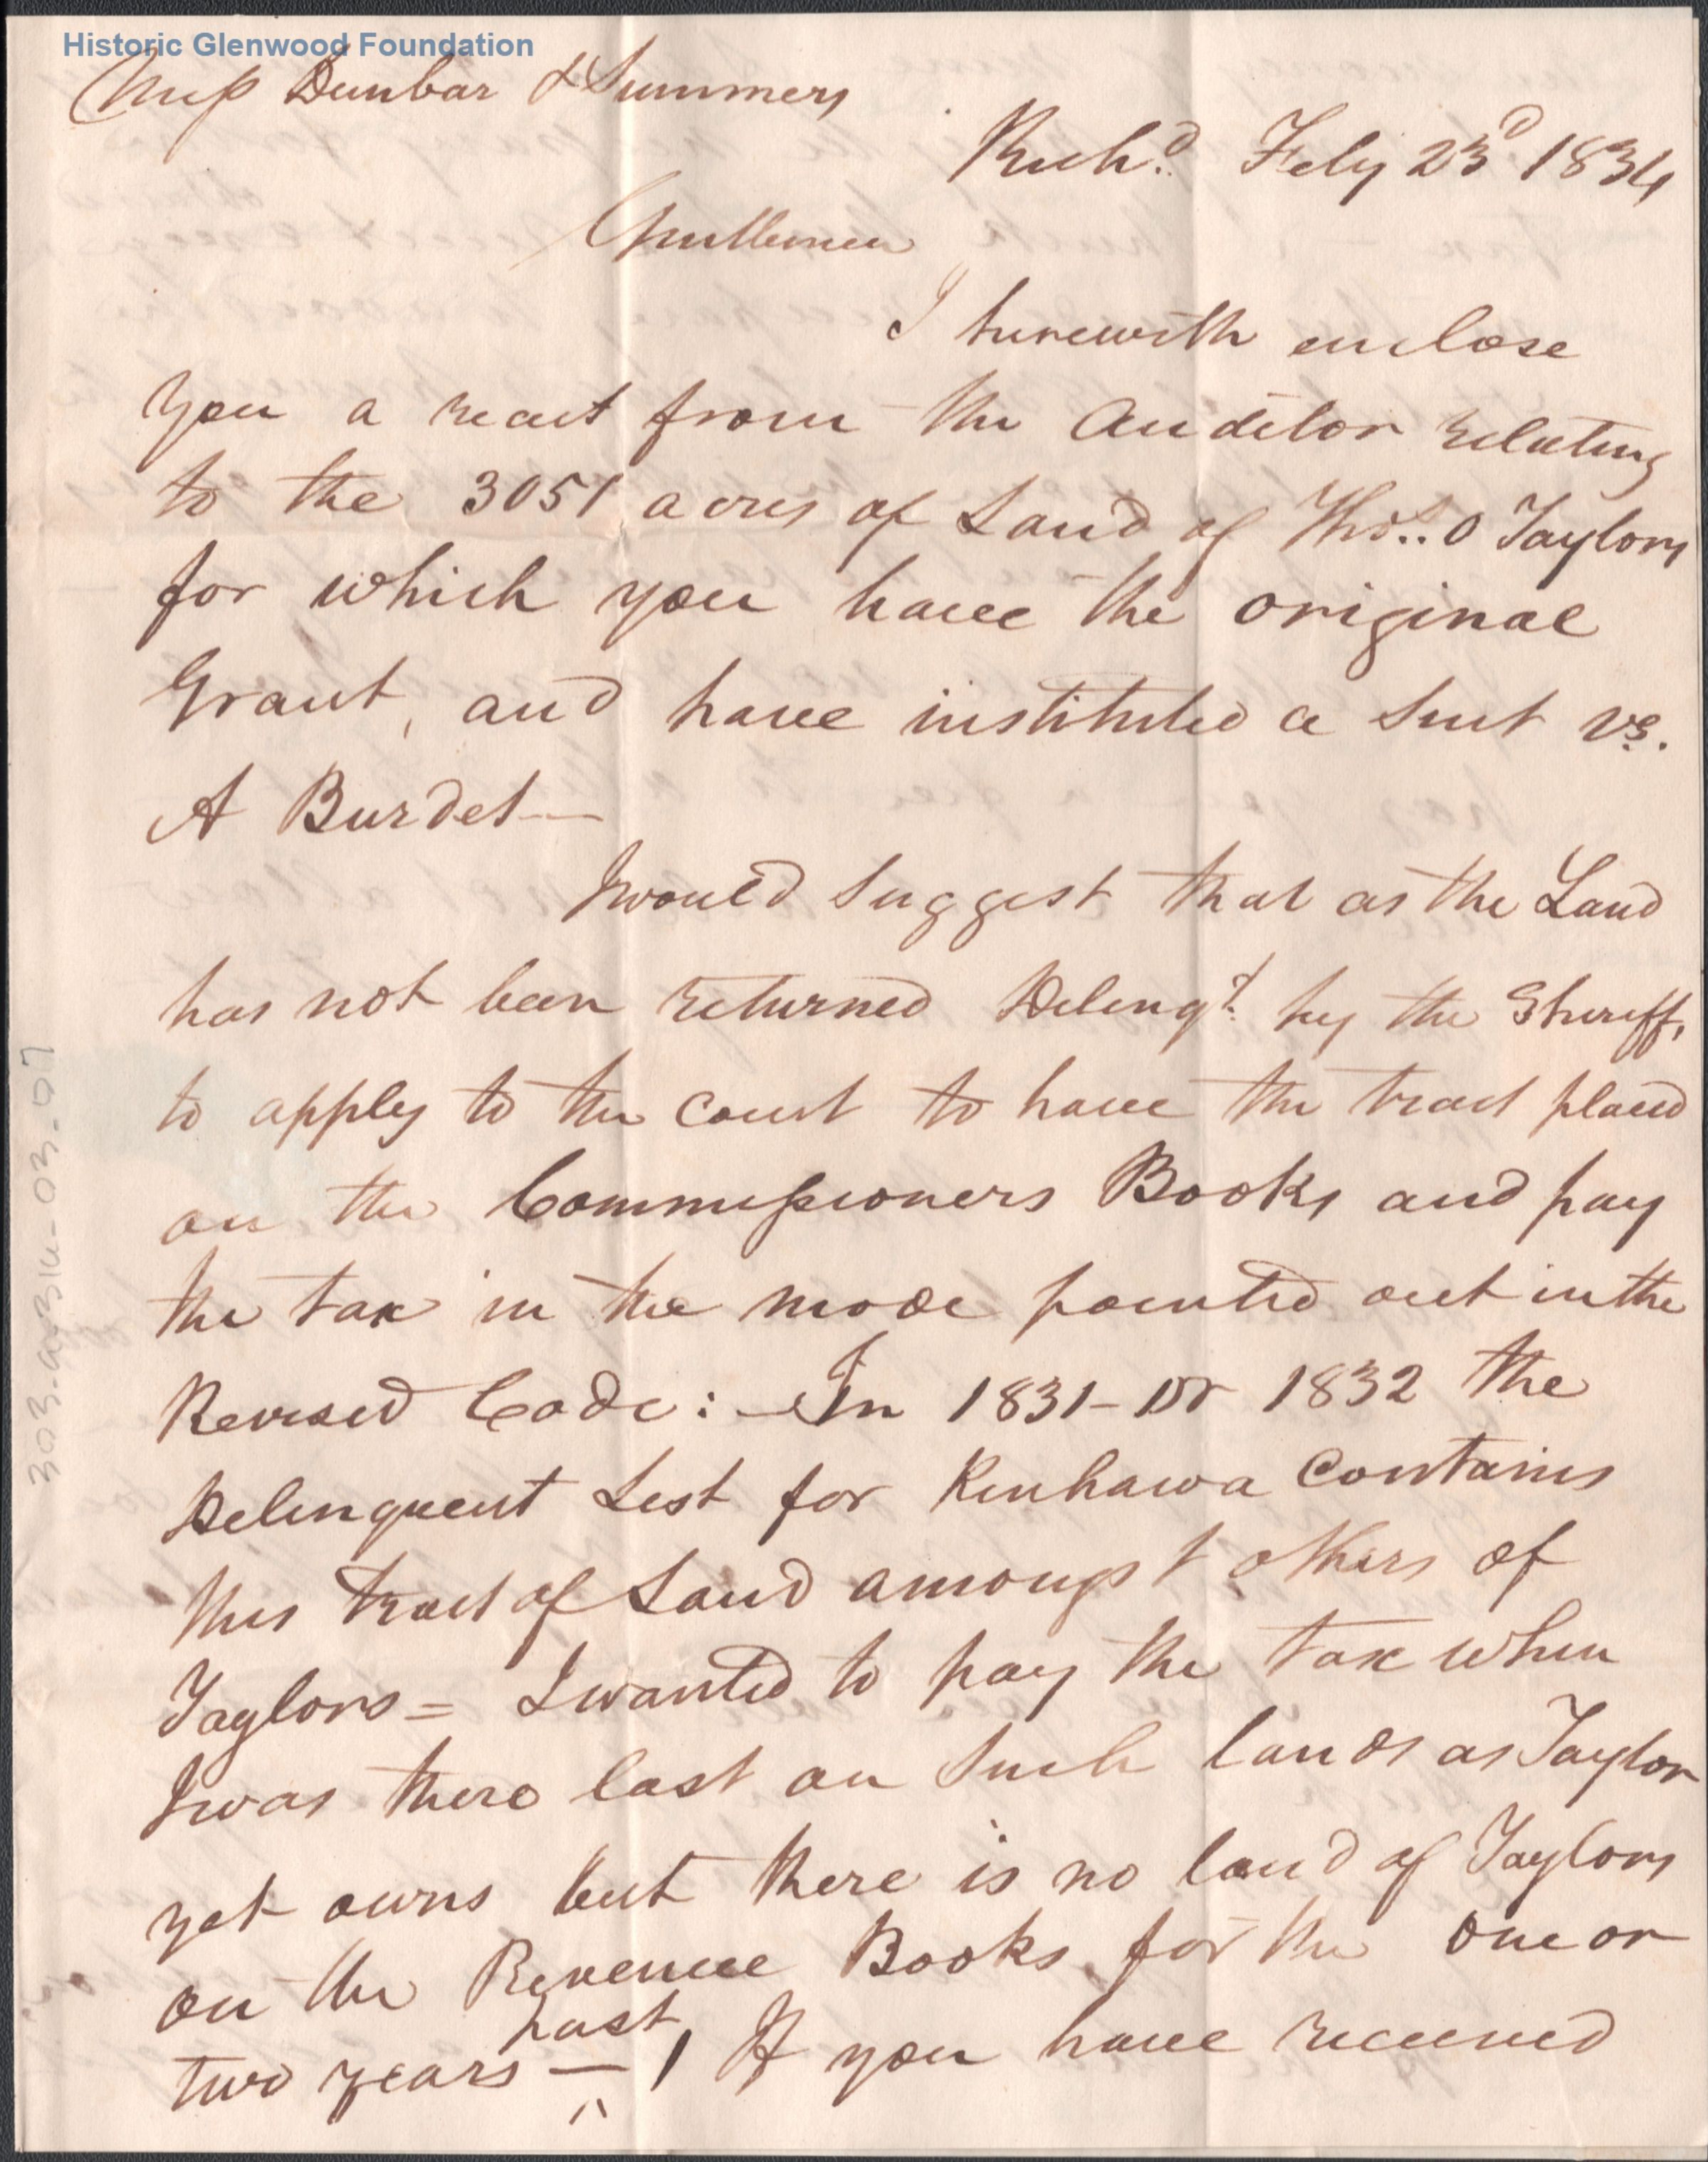 Historic Glenwood Foundation
Mess Dunbar & Summers
Richd. Feby 23d 1834
Gentlemen
I herewith enclose
you a rect from the Auditor relating
to the 3051 acres of Land of Thos. O Taylors
for which you have the original
Grant, and have instituted a Suit vs.
A Burdet—
I would suggest that as the Land
has not been returned Delinqt. by the Sheriff,
to apply to the Court to have the tract placed
on the Commissioners Books and pay
the tax in the mode pointed out in the
Revised Code: — In 1831 – or 1832 the
Delinquent List for Kenhawa Contains
this tract of Land amongst others of
Taylors = I wanted to pay the tax when
I was there last on such lands as Taylor
yet owns but there is no land of Taylors
on the Revenue Books for the one or
two years past — / If you have received
303.aa31a-03.07